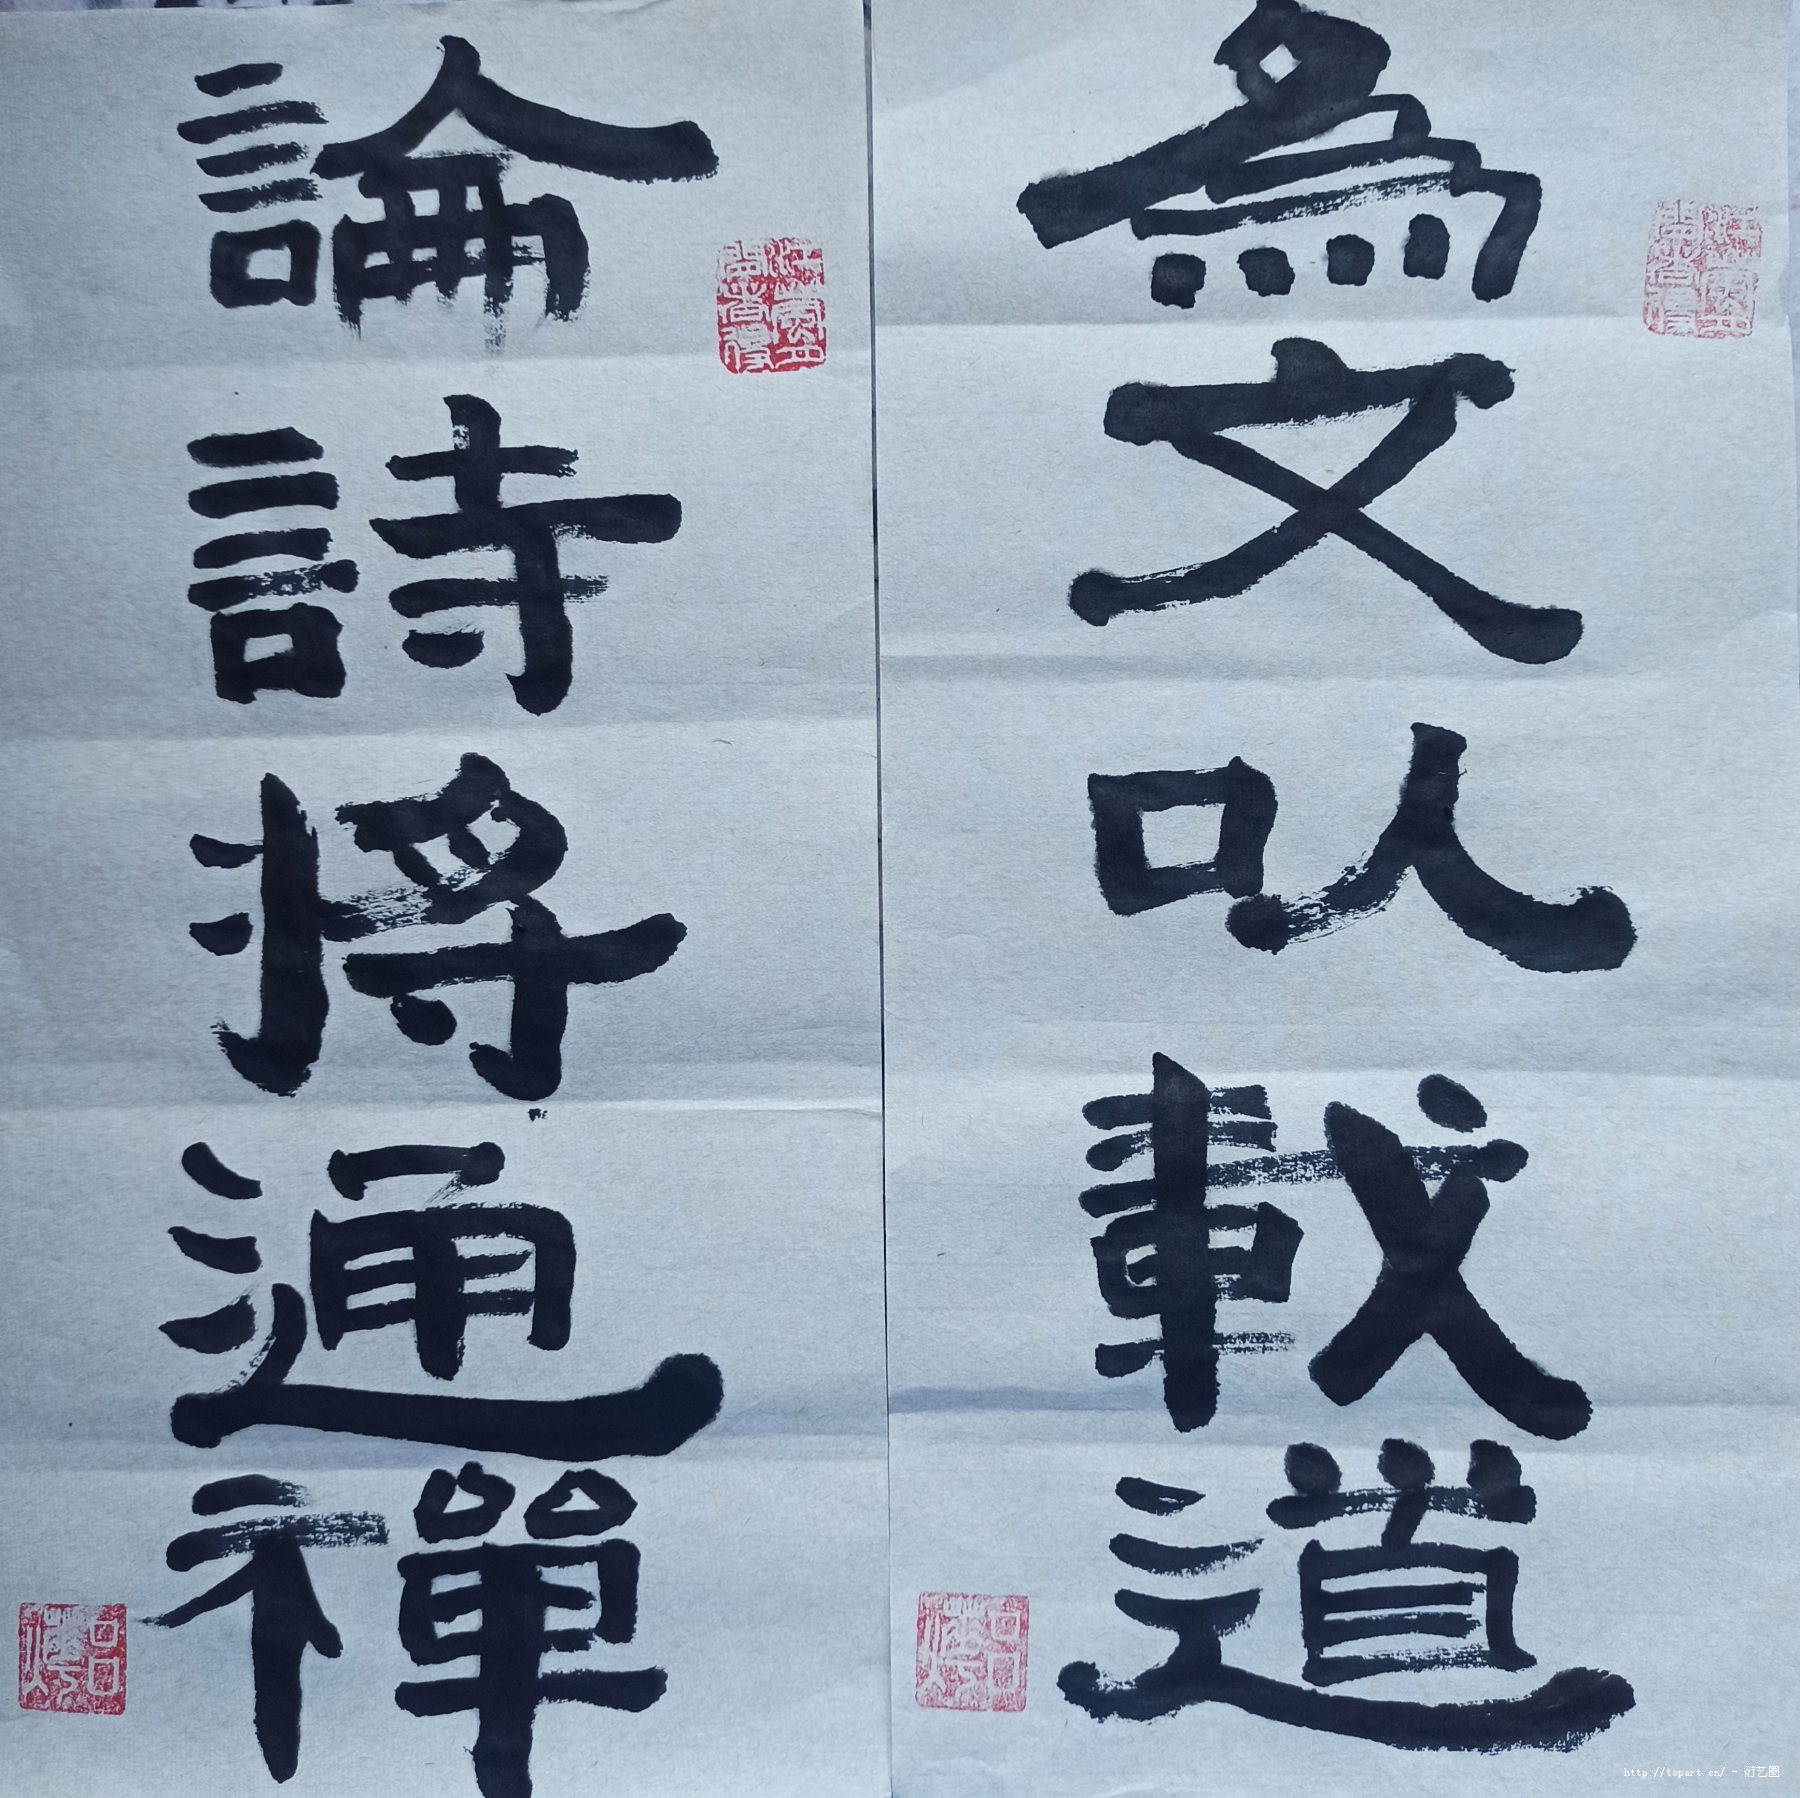 為文以載道
論詩將通禪
http://topart.cn/ - 衍艺圈